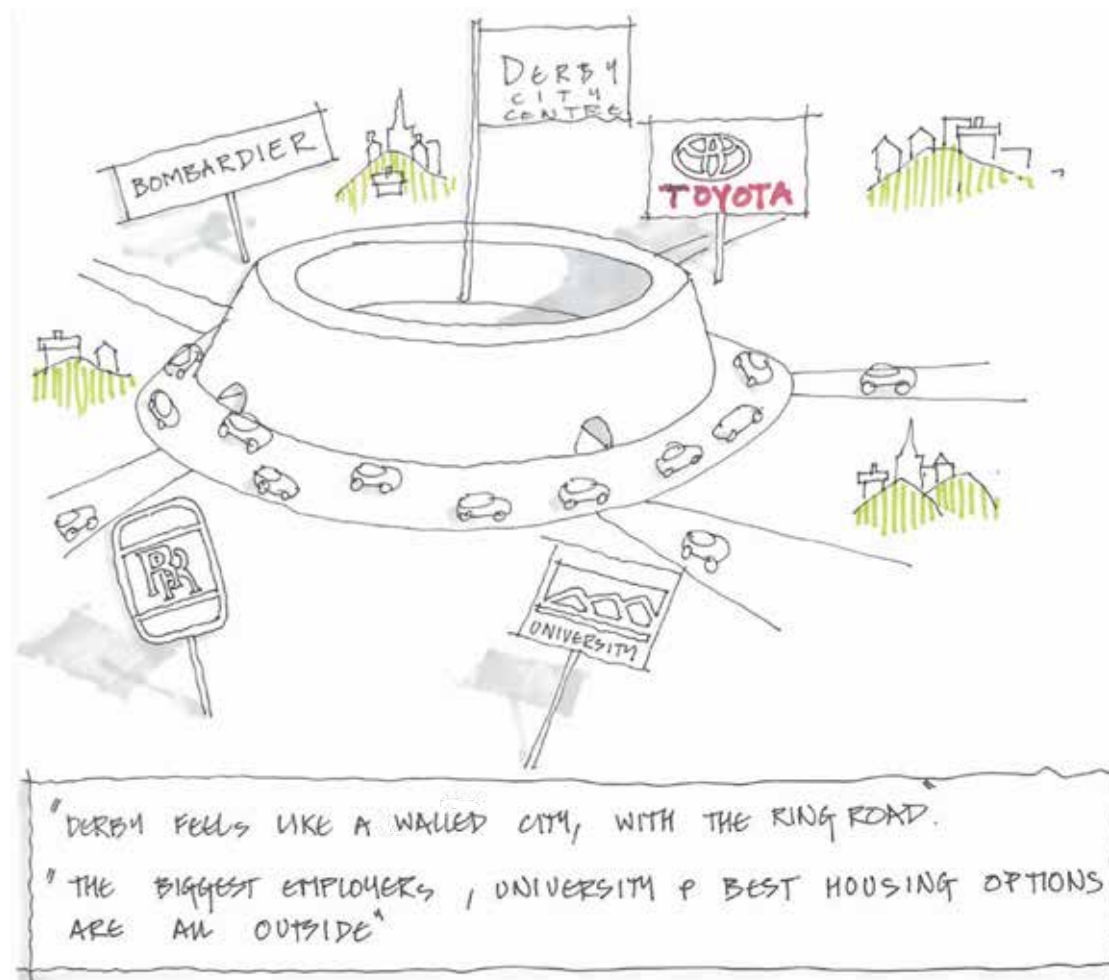 DERBY
CITY
CENTRE
BOMBARDIER
TOYOTA
RR
UNIVERSITY
"DERBY FEELS LIKE A WALLED CITY, WITH THE RING ROAD."
"THE BIGGEST EMPLOYERS, UNIVERSITY & BEST HOUSING OPTIONS
ARE ALL OUTSIDE"